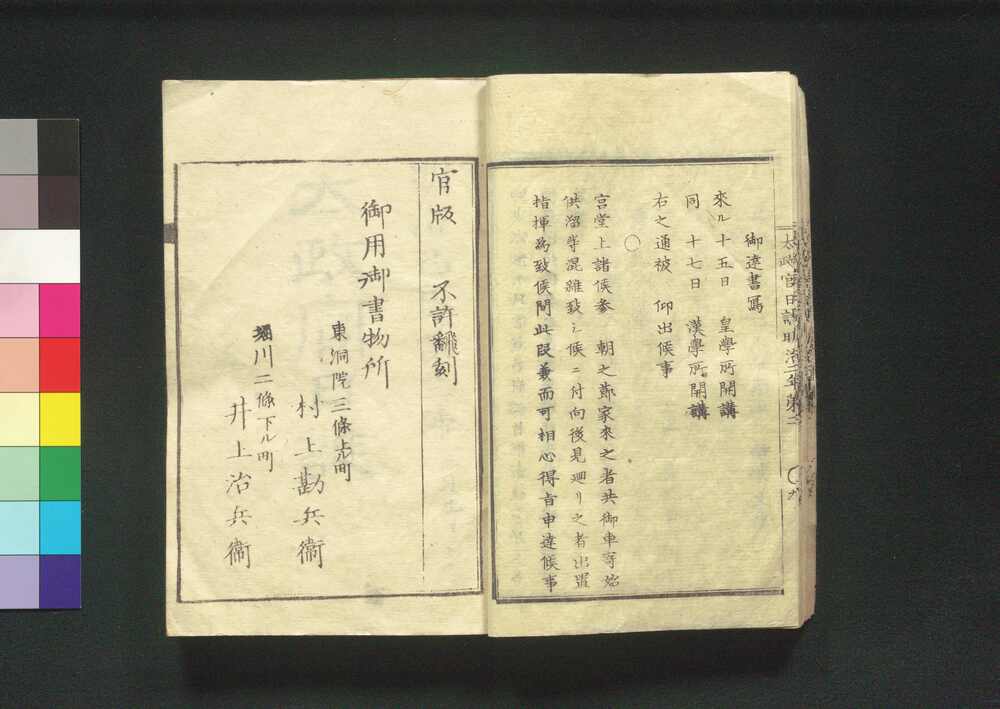 御達書寫
來ル十五日 皇學所開講
同 十七日 漢學所開講
右之通被 仰出候事
○
宮堂上諸侯參 朝之節家來之者共御車寄始
供溜等混雜致シ候ニ付向後見廻リ之者出置
指揮爲致候間此段兼而可相心得旨申達候事
太政官日誌明治二年第二
九
官版 不許翻刻
御用御書物所
東洞院三條上ル町
村上勘兵衞
堀川二條下ル町
井上治兵衞